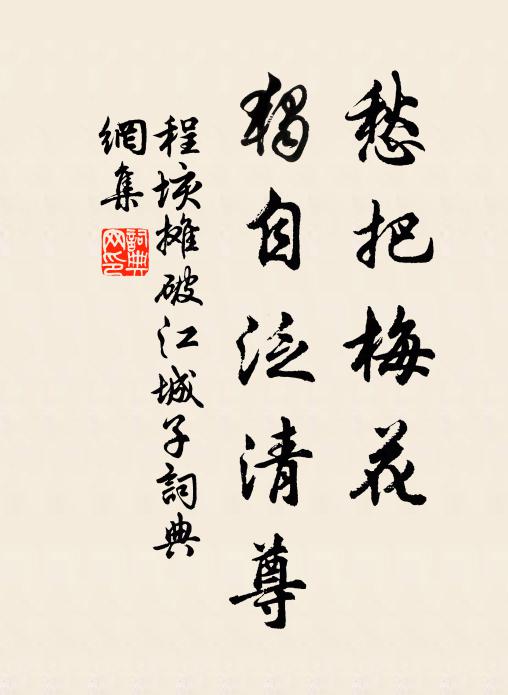 愁把梅花
獨自泛清尊
程垓攤破江城子詞典
網集
詞典網印